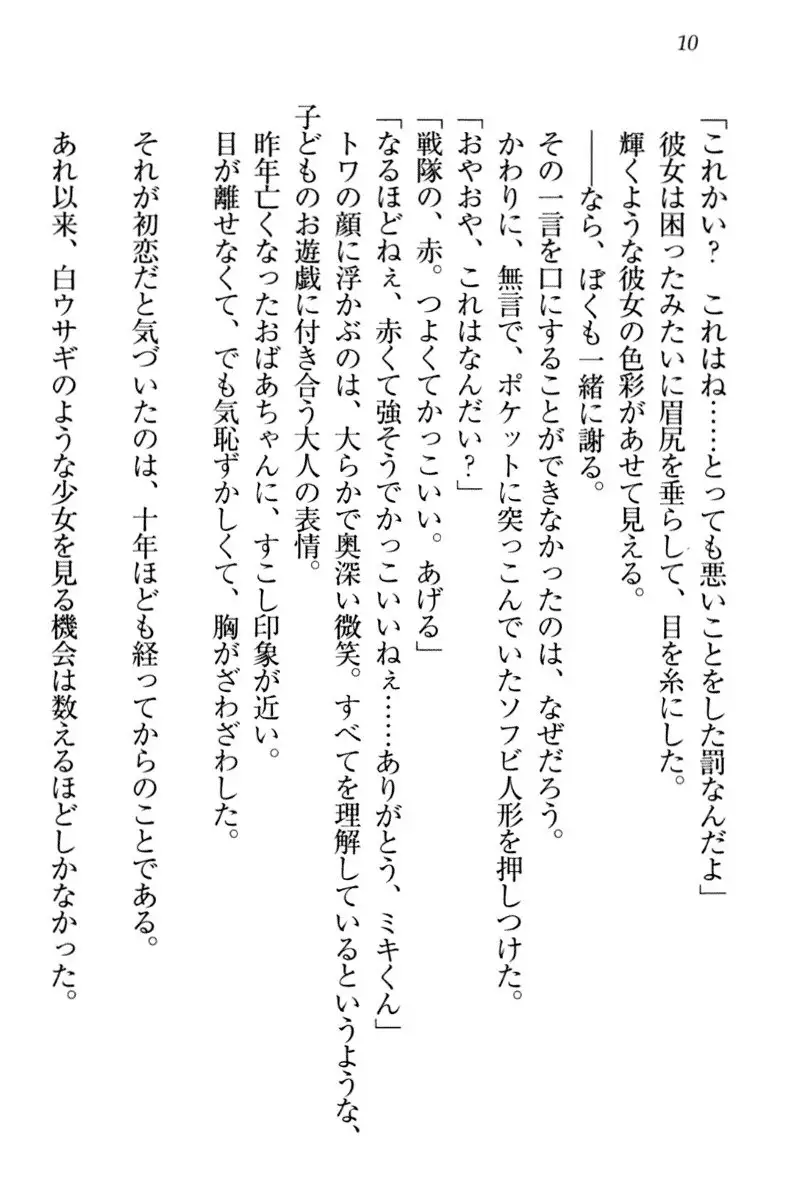 10
「これかい？　これはね……とっても悪いことをした罰なんだよ」
彼女は困ったみたいに眉尻を垂らして、目を糸にした。
輝くような彼女の色彩があせて見える。
――なら、ぼくも一緒に謝る。
その一言を口にすることができなかったのは、なぜだろう。
かわりに、無言で、ポケットに突っこんでいたソフビ人形を押しつけた。
「おやおや、これはなんだい？」
「戦隊の、赤。つよくてかっこいい。あげる」
「なるほどねぇ、赤くて強そうでかっこいいねぇ……ありがとう、ミキくん」
トワの顔に浮かぶのは、大らかで奥深い微笑。すべてを理解しているというような、
子どものお遊戯に付き合う大人の表情。
昨年亡くなったおばあちゃんに、すこし印象が近い。
目が離せなくて、でも気恥ずかしくて、胸がざわざわした。
それが初恋だと気づいたのは、十年ほども経ってからのことである。
あれ以来、白ウサギのような少女を見る機会は数えるほどしかなかった。